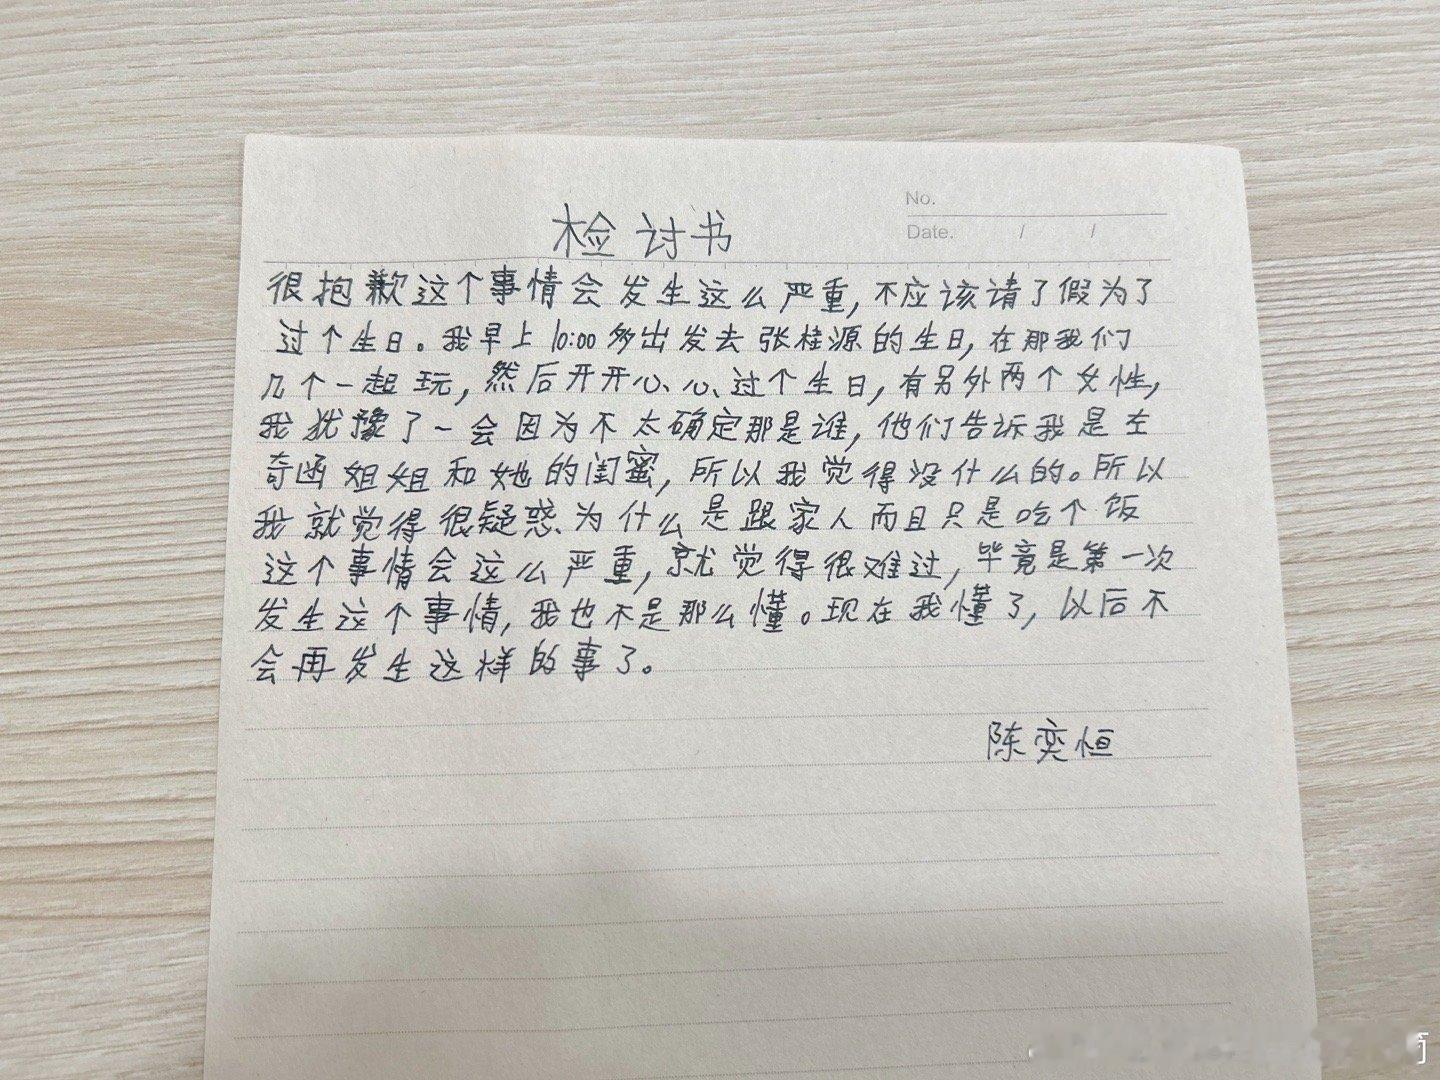 No.
Date. / /
检讨书
很抱歉这个事情会发生这么严重,不应该请了假为了
过个生日。我早上10:00多出发去张桂源的生日,在那我们
几个一起玩,然后开开心心过个生日,有另外两个女性,
我犹豫了一会因为不太确定那是谁,他们告诉我是左
奇函姐姐和她的闺蜜,所以我觉得没什么的。所以
我就觉得很疑惑为什么是跟家人而且只是吃个饭
这个事情会这么严重,就觉得很难过,毕竟是第一次
发生这个事情,我也不是那么懂。现在我懂了,以后不
会再发生这样的事了。
陈奕恒